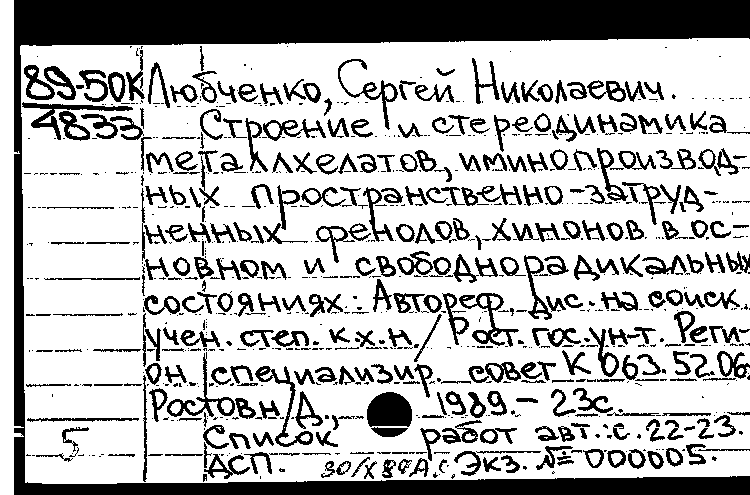 89-50К Любченко, Сергей Николаевич.
4833 Строение и стереодинамика
металлхелатов, иминопроизвод-
ных пространственно-затруд-
ненных фенолов, хинонов в ос-
новном и свободнорадикальных
состояниях: Автореф. дис. на соиск.
учен. степ. к.х.н. / Рост. гос. ун-т. Реги-
он. специализир. совет К 063.52.06.
Ростов н/Д., 1989. - 23с.
5 Список работ авт.: с. 22-23.
ДСП. 30/X 89 Экз. № 000005.